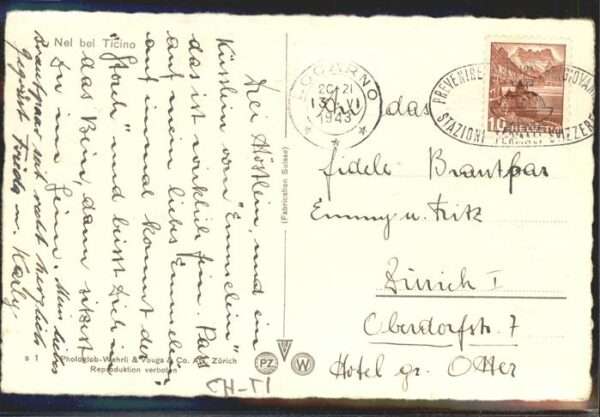 Nel bei Ticino
Drei Höstlein, und ein
Küsslein vom "Emmelein"
das ist wirklich fein. Pass
auf mein liebs Emmelein
auf einmal kommt der
"Storch" und beisst Dich in
das Bein, dann sitzest
Du im Heim. Mein liebes
Brautpaar seit recht herzlich
gegrüsst Frieda u. Karly.
Photoglob-Wehrli & Vouga & Co. A.G. Zürich
Reproduktion verboten
CH-TI
(Fabrication Suisse)
PZ
W
LOCARNO
1943
PREVENIRE
GIOVANI
STAZIONI
SVIZZERE
10
HELVETIA
An das
fidele Brautpaar
Emmy u. Fritz
Zürich I
Oberdorfstr. 7
Hotel gr. Otter